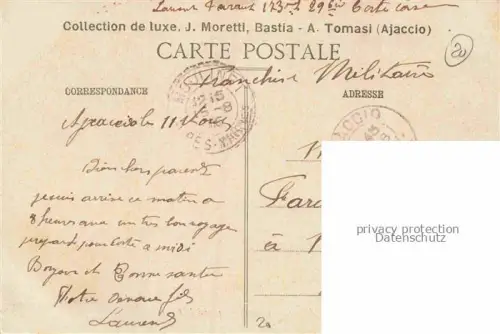 Laurent Faraut 173e 29e Corte Corse
Collection de luxe. J. Moretti, Bastia - A. Tomasi (Ajaccio)
CARTE POSTALE
20
Franchise Militaire
CORRESPONDANCE
ADRESSE
12-15
Ajaccio le 11
Bien chers parents
je suis arrivé ce matin a
8 heures avec un très bon voyage
je repart pour Corte a midi
Bonjour et Bonne santé
Votre fils
Laurent
AJACCIO
Fara
à
privacy protection
Datenschutz
20